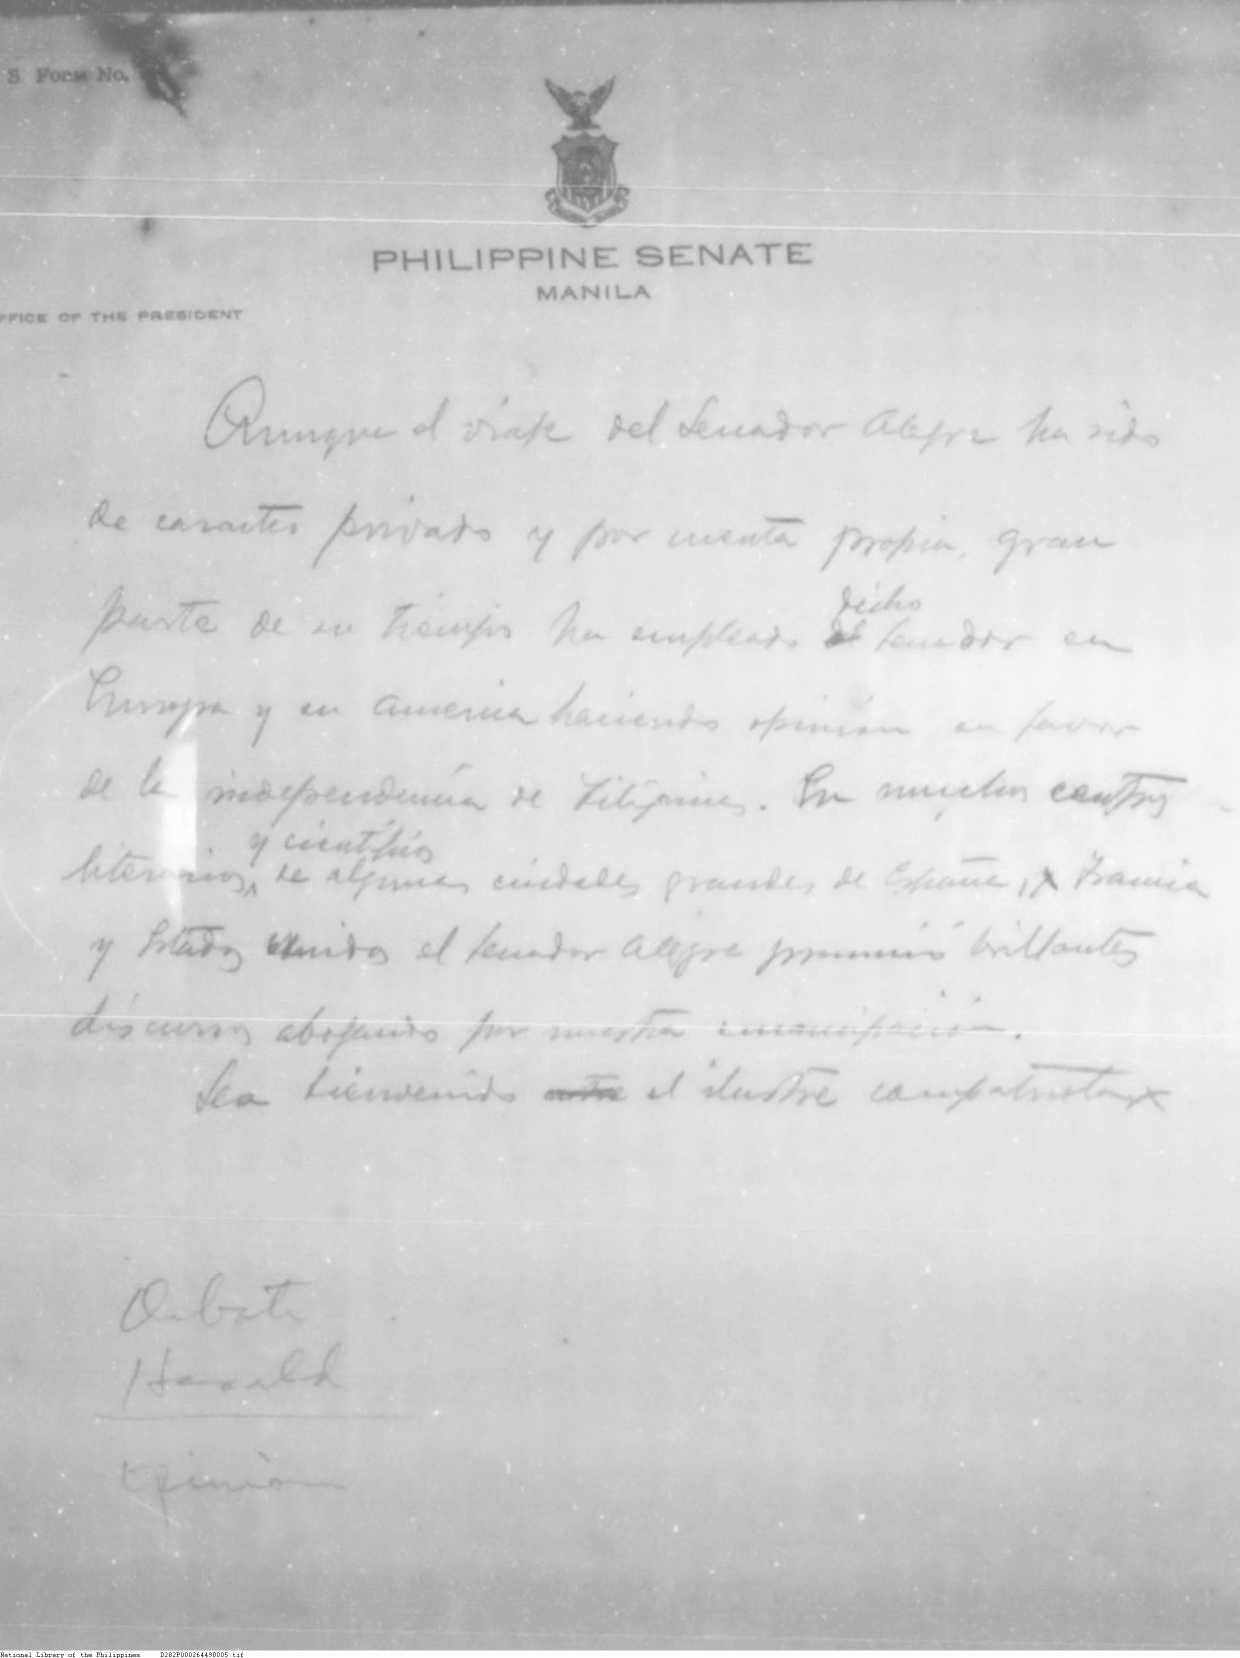 S Form No.
PHILIPPINE SENATE
MANILA
OFFICE OF THE PRESIDENT
Aunque el viaje del Senador Alegre ha sido
de caracter privado y por cuenta propia, gran
parte de su tiempo ha empleado el dicho senador en
Europa y en America haciendo opinión en favor
de la independencia de Filipinas. En muchos centros
literarios y científicos de algunas ciudades grandes de España, y Francia
y Estados Unidos el senador Alegre pronunció brillantes
discursos abogando por nuestra emancipación.
Sea bienvenido el ilustre compatriota
Debate
Herald
Opinion
National Library of the Philippines D282P000264490005.tif